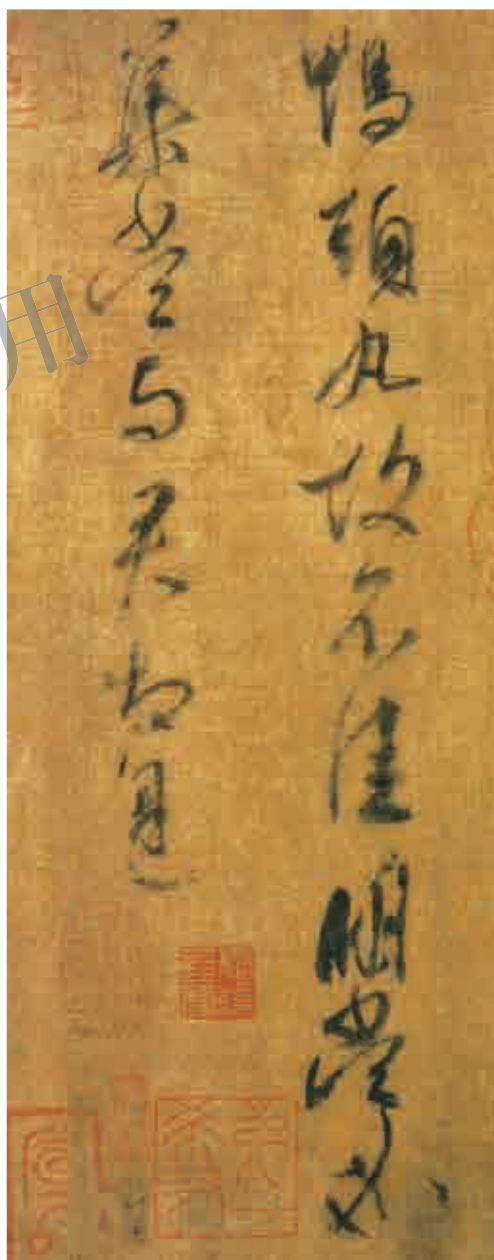 鴨頭丸故不佳明當必
集當與君相見
用